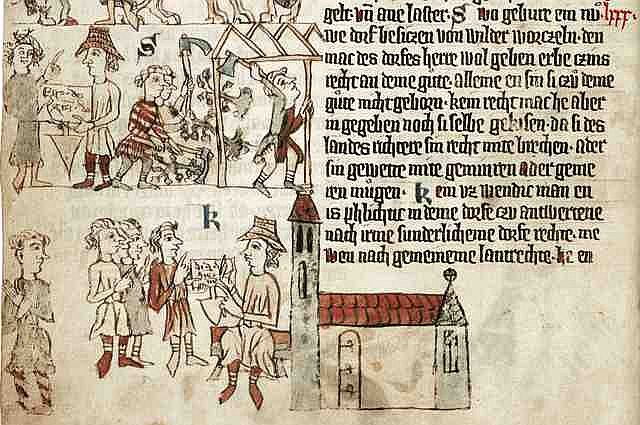 gelt· vn̄ ane laster· S wo gebure ein nuͦ· lxxx·
we dorf besiczen von wilder worczeln· den
mac des dorfes herre wol geben erbe czins
recht an deme gute· alleine en sin si czu deme
gute nicht geborn· kein recht mac he aber
in gegeben noch si selbe kisen· da si des
landes richtere sin recht mite brechen· ader
sin gewette mite ader geme
ren mugen· k ein vz wendic man en
is phlichtic in deme dorfe czu antwertene
nach irme sunderlicheme dorf rechte· me
wen nach gemeineme lantrechte· en
S
k